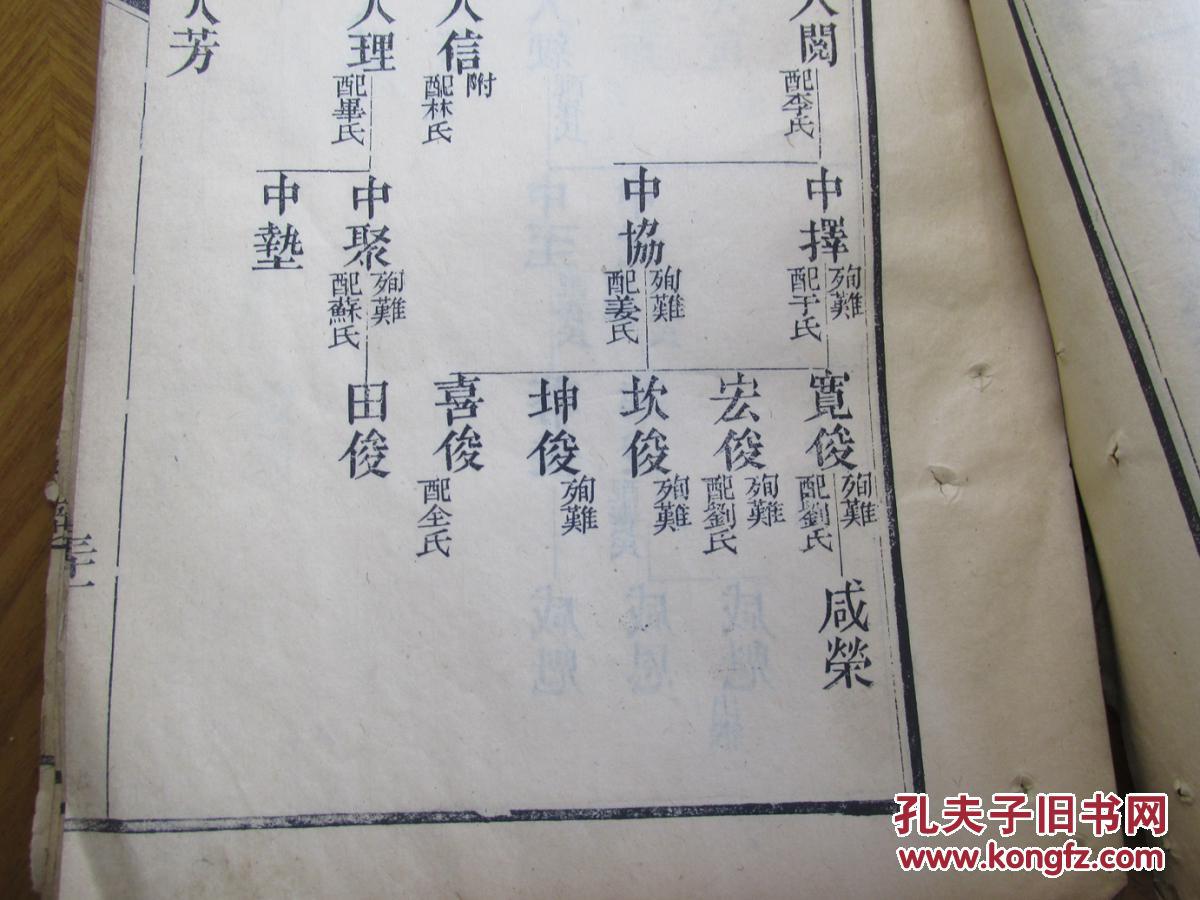 人閱
配李氏
人信
附
配林氏
人理
配畢氏
人芳
中擇
殉難
配于氏
中協
殉難
配姜氏
中聚
殉難
配蘇氏
中墊
寬俊
殉難
配劉氏
宏俊
殉難
配劉氏
坎俊
殉難
坤俊
殉難
喜俊
配全氏
田俊
咸榮
孔夫子旧书网
www.kongfz.com